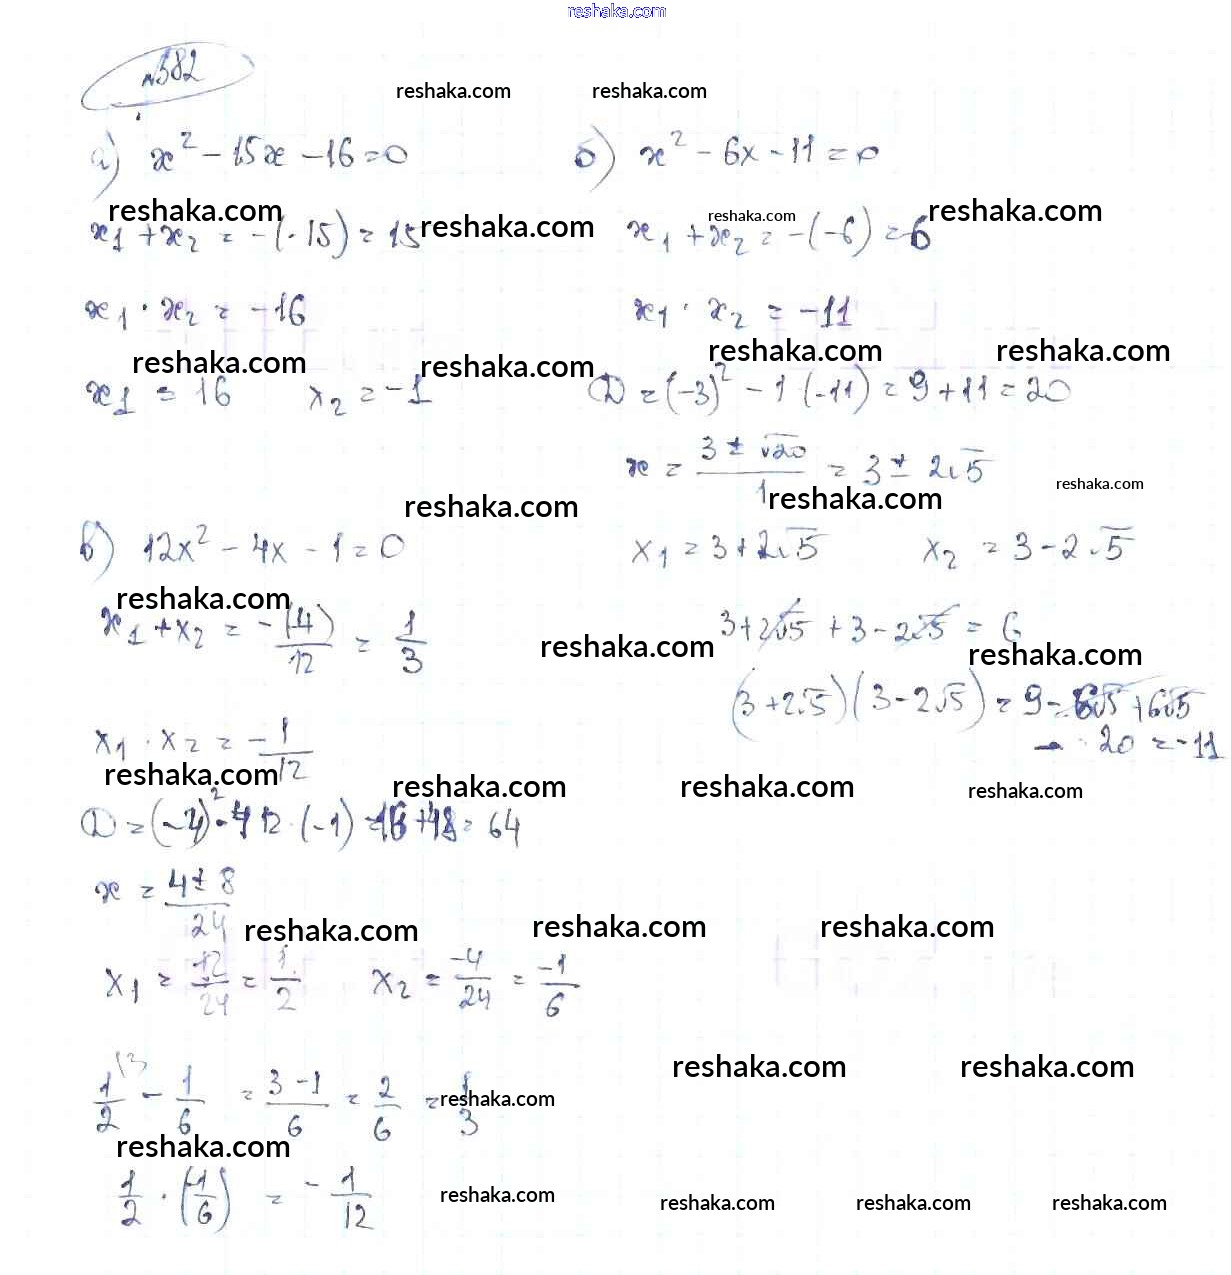 reshaka.com
№582
reshaka.com reshaka.com
а) x² - 15x - 16 = 0
б) x² - 6x - 11 = 0
reshaka.com reshaka.com reshaka.com reshaka.com
x₁ + x₂ = -(-15) = 15
x₁ + x₂ = -(-6) = 6
x₁ · x₂ = -16
x₁ · x₂ = -11
reshaka.com reshaka.com reshaka.com reshaka.com
x₁ = 16 x₂ = -1
D = (-3)² - 1 (-11) = 9 + 11 = 20
x = (3 ± √20)/1 = 3 ± 2√5
reshaka.com reshaka.com reshaka.com
в) 12x² - 4x - 1 = 0
x₁ = 3 + 2√5 x₂ = 3 - 2√5
reshaka.com reshaka.com reshaka.com
x₁ + x₂ = -(-4)/12 = 1/3
3 + 2√5 + 3 - 2√5 = 6
(3 + 2√5)(3 - 2√5) = 9 - 6√5 + 6√5
- 20 = -11
x₁ · x₂ = -1/12
reshaka.com reshaka.com reshaka.com reshaka.com
D = (-4)² - 4 12 · (-1) = 16 + 48 = 64
x = (4 ± 8)/24
reshaka.com reshaka.com reshaka.com
x₁ = 12/24 = 1/2 x₂ = -4/24 = -1/6
reshaka.com reshaka.com
1/2 (3 - 1/6 = (3 - 1)/6 = 2/6 = 1/3
reshaka.com reshaka.com
1/2 · (-1/6) = - 1/12
reshaka.com reshaka.com reshaka.com reshaka.com